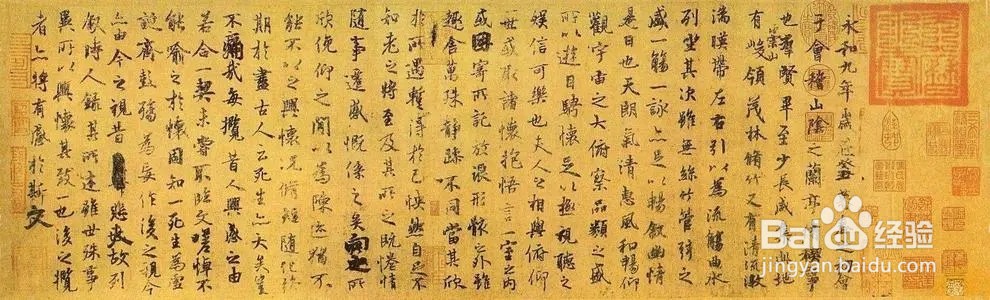 永和九年歲在癸丑暮春之初會
于會稽山陰之蘭亭脩稧事
也羣賢畢至少長咸集此地
有崇山峻領茂林脩竹又有清流激
湍暎帶左右引以為流觴曲水
列坐其次雖無絲竹管弦之
盛一觴一詠亦足以暢敘幽情
是日也天朗氣清惠風和暢仰
觀宇宙之大俯察品類之盛
所以遊目騁懷足以極視聽之
娛信可樂也夫人之相與俯仰
一世或取諸懷抱悟言一室之內
或因寄所託放浪形骸之外雖
趣舍萬殊靜躁不同當其欣
於所遇暫得於己怏然自足不
知老之將至及其所之既惓情
隨事遷感慨係之矣向之所
欣俛仰之閒以為陳跡猶不
能不以之興懷況脩短隨化終
期於盡古人云死生亦大矣豈
不痛哉每攬昔人興感之由
若合一契未嘗不臨文嗟悼不
能喻之於懷固知一死生為虛
誕齊彭殤為妄作後之視今
亦由今之視昔悲夫故列
敘時人錄其所述雖世殊事
異所以興懷其致一也後之攬
者亦將有感於斯文
Baidu 经验
jingyan.baidu.com